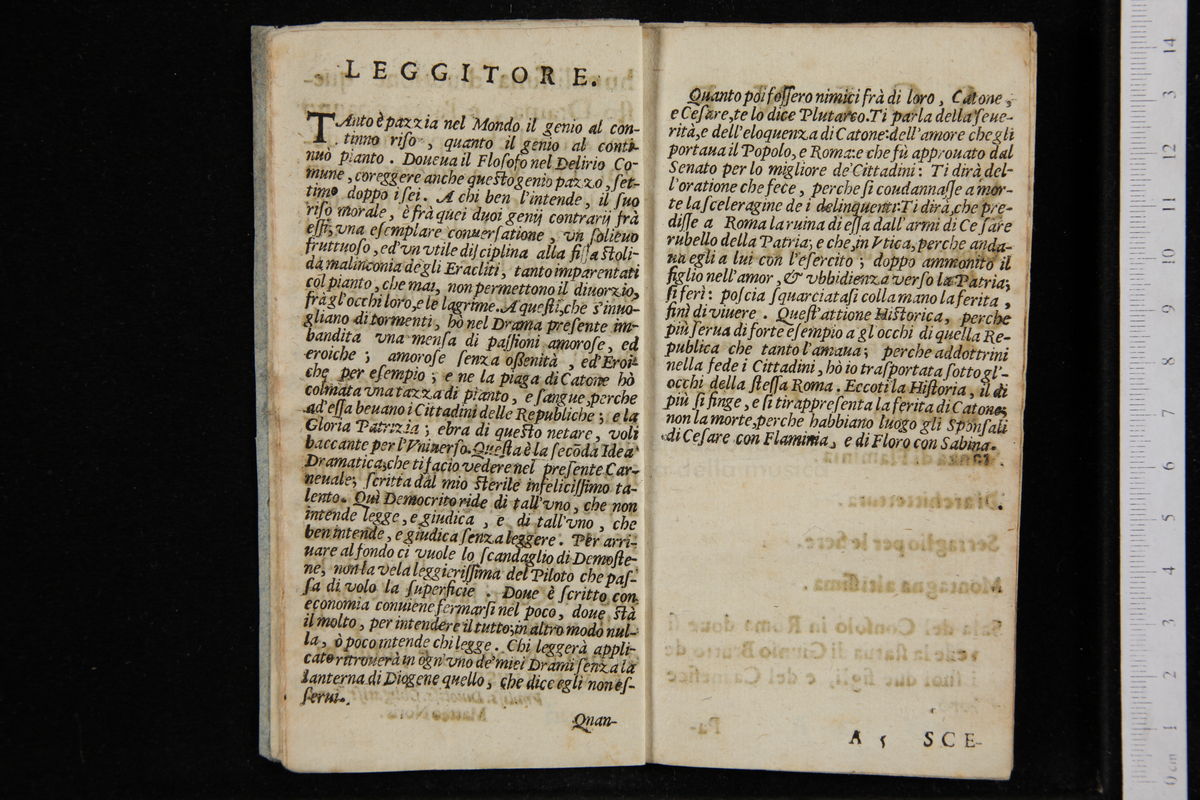 LEGGITORE.
TAnto è pazzia nel Mondo il genio al con-
tinuo riso, quanto il genio al conti-
nuo pianto. Doueua il Flosofo nel Delirio Co-
mune, coreggere anche questo genio pazzo, set-
timo doppo i sei. A chi ben l'intende, il suo
riso morale, è frà quei duoi genij contrarij frà
essi, vna esemplare conuersatione, vn solieuo
fruttuoso, ed'vn vtile disciplina alla fissa stoli-
da malinconia degli Eracliti, tanto imparentati
col pianto, che mai, non permettono il diuorzio,
frà gl'occhi loro, e le lagrime. A questi, che s'inuo-
gliano di tormenti, hò nel Drama presente im-
bandita vna mensa di passioni amorose, ed
eroiche; amorose senza oßenità, ed'Eroi-
che per esempio; e ne la piaga di Catone hò
colmata vna tazza di pianto, e sangue, perche
ad'essa beuano i Cittadini delle Republiche; e la
Gloria Patrizia; ebra di questo netare, voli
baccante per l'Vniuerso. Questa è la secōda Idea
Dramatica, che ti facio vedere nel presente Car-
neuale; scritta dal mio sterile infelicissimo ta-
lento. Quì Democrito ride di tall'vno, che non
intende legge, e giudica, e di tall'vno, che
ben intende, e giudica senza leggere. Per arri-
uare al fondo ci vuole lo scandaglio di Demoste-
ne, non la vela leggierissima del Piloto che pas-
sa di volo la superficie. Doue è scritto con
economia conuiene fermarsi nel poco, doue stà
il molto, per intendere il tutto; in altro modo nul-
la, ò poco intende chi legge. Chi leggerà appli-
cato ritrouerà in ogn'vno de' miei Drami senza la
lanterna di Diogene quello, che dice egli non es-
serui.
Quan-
Quanto poi fossero nimici frà di loro, Catone,
e Cesare, te lo dice Plutarco. Ti parla della seue-
rità, e dell'eloquenza di Catone: dell'amore che gli
portaua il Popolo, e Roma: e che fù approuato dal
Senato per lo migliore de' Cittadini: Ti dirà del-
l'oratione che fece, perche si coudannasse a mor-
te la sceleragine de i delinquenti: Ti dirà, che pre-
disse a Roma la ruina di essa dall'armi di Cesare
rubello della Patria; e che, in Vtica, perche anda-
ua egli a lui con l'esercito; doppo ammonito il
figlio nell'amor, & vbbidienza verso la Patria;
si ferì: poscia squarciatasi colla mano la ferita,
finì di viuere. Quest'attione Historica, perche
più serua di forte esempio a gl'occhi di quella Re-
publica che tanto l'amaua; perche addottrini
nella fede i Cittadini, hò io trasportata sotto gl'-
occhi della stessa Roma. Eccoti la Historia, il di
più si finge, e si tirappresenta la ferita di Catone;
non la morte, perche habbiano luogo gli Sponsali
di Cesare con Flaminia, e di Floro con Sabina.
A 5 SCE-